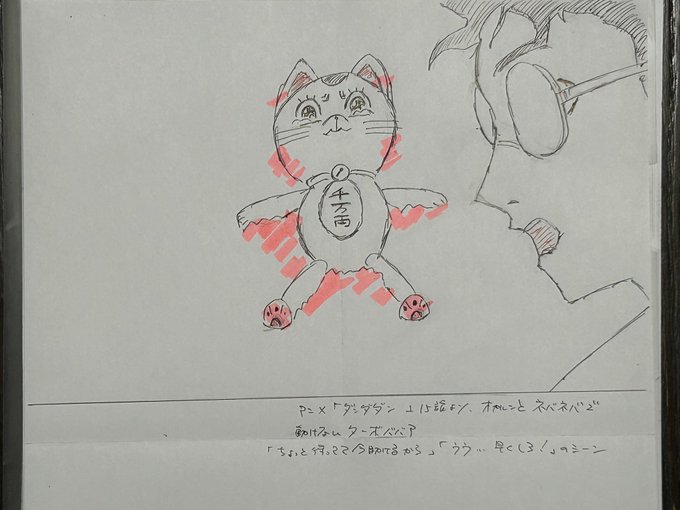 千万両
アニメ「ダンダダン」15話より、オカルンと ネバネバで
動けない ターボババア
「ちょっと待ってて今助けるから」「ううぃ 早くしろ!」のシーン